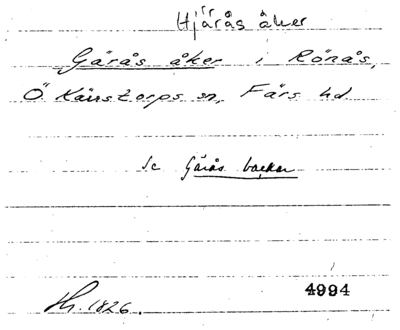 Hjärås åker
Gärås åker i Rönås,
Ö Kärrstorps sn, Färs hd
Se Gärås backar
Hy. 1826.
4994